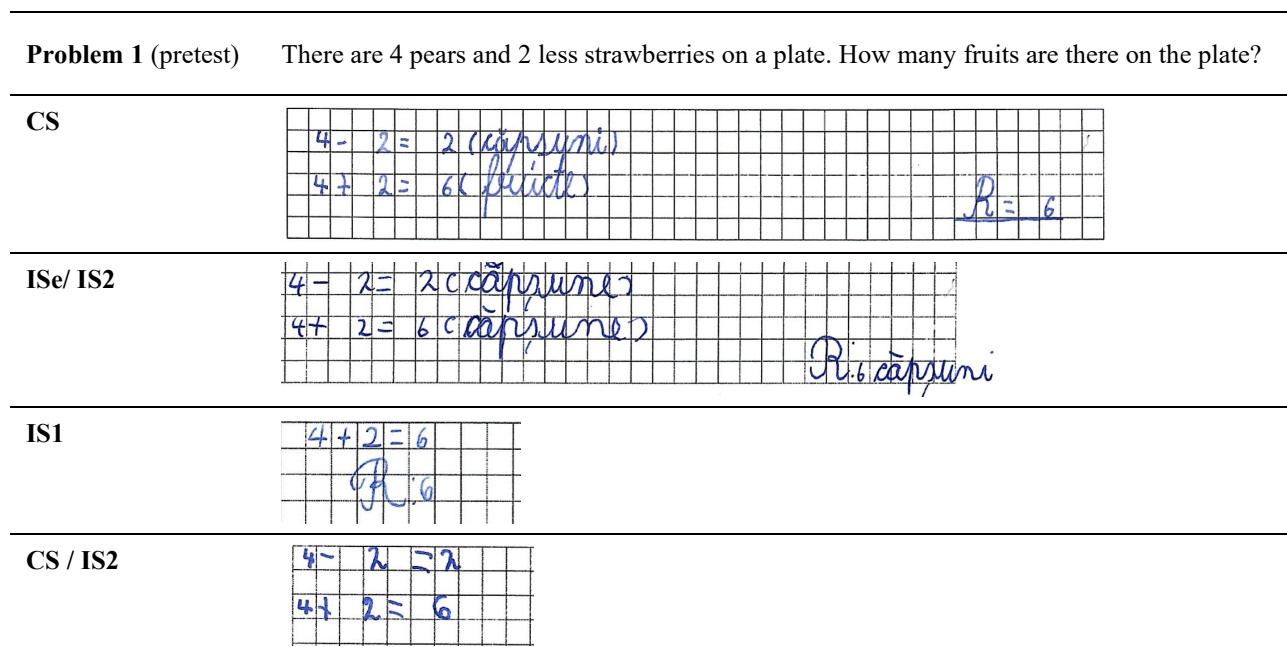 Problem 1 (pretest) There are 4 pears and 2 less strawberries on a plate. How many fruits are there on the plate?
CS
4 - 2 = 2 (căpșuni)
4 + 2 = 6 (fructe)
R = 6
ISe/ IS2
4 - 2 = 2 (căpșune)
4 + 2 = 6 (căpșune)
R: 6 căpșuni
IS1
4 + 2 = 6
R: 6
CS / IS2
4 - 2 = 2
4 + 2 = 6